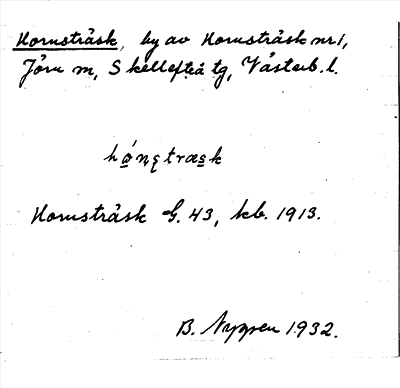 Hornsträsk, by av Hornsträsk nr 1,
Jörn sn, Skellefteå tg, Västerb. l.
Hornsträsk G. 43, kb. 1913.
B. Nyman 1932.